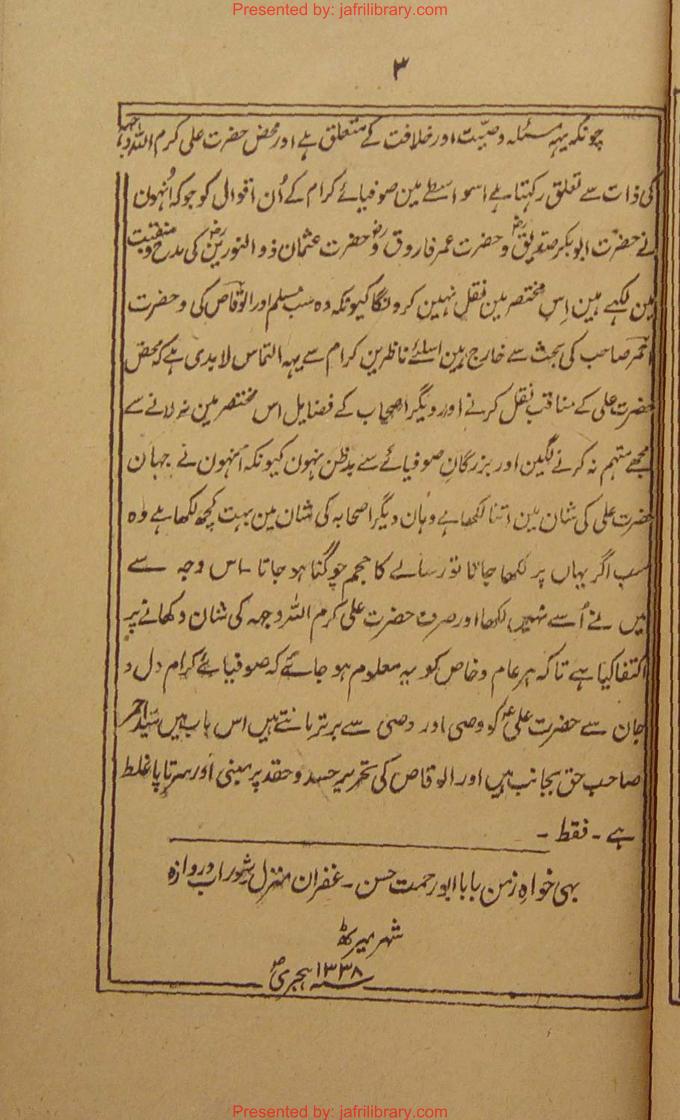 Presented by: jafrilibrary.com
۳
چونکہ یہہ مسئلہ وصیّت اور خلافت کے متعلق ہے اور محض حضرت علی کرم اللہ وجہہ
کی ذات سے تعلق رکہتا ہے اسو اسطے مین صوفیائے کرام کے اُن اقوال کو جو کہ اُنہون
نے حضرت ابوبکر صدیقؓ و حضرت عمر فاروقؓ و حضرت عثمان ذوالنورینؓ کی مدح و منقبت
مین لکہے ہین اِس مختصر مین نقل نہین کرونگا کیونکہ وہ سب مسلم اور الوقاص کی و حضرت
احمر صاحب کی بحث سے خارج ہین اسلئے ناظرین کرام سے یہہ التماس لابدی ہے کہ محض
حضرت علی کے مناقب نقل کرنے اور دیگر اصحاب کے فضایل اس مختصر مین نہ لانے سے
مجھے متہم نہ کرنے لگین اور بزرگانِ صوفیائے سے بدظن نہون کیونکہ اُنہون نے جہان
حضرت علی کی شان مین اتنا لکھا ہے وہان دیگر اصحابہ کی شان مین بہت کچھ لکھا ہے وہ
سب اگر یہاں پر لکھا جاتا تو رسالے کا حجم چوگنا ہو جاتا ۔ اس وجہ سے
میں نے اُسے نہیں لکھا اور صرف حضرت علی کرم اللہ وجہہ کی شان دکھانے پر
اکتفا کیا ہے تاکہ ہر عام و خاص کو یہ معلوم ہو جائے کہ صوفیائے کرام دل و
جان سے حضرت علیؑ کو وصی اور وصی سے برتر مانتے ہیں اس باب میں سیّد احمر
صاحب حق بجانب ہیں اور الوقاص کی تحریر حسد و حقد پر مبنی اور سرتاپا غلط
ہے ۔ فقط ۔
بہی خواہِ زمن بابا ابو رحمت حسن ۔ غفران منزل شوراب دروازہ
شہر میرٹھ
سنہ ۱۳۳۸ ہجریؐ
Presented by: jafrilibrary.com